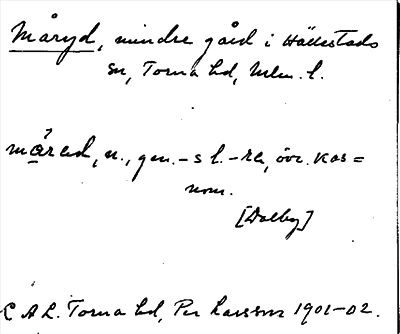 Måryd, mindre gård i Hällestads
sn, Torna hd, Mlm. l.
måred, n., gen. -s l. -rä, övr. kas=
nom.
[Dalby]
C A L. Torna hd, Per Larsson 1901-02.